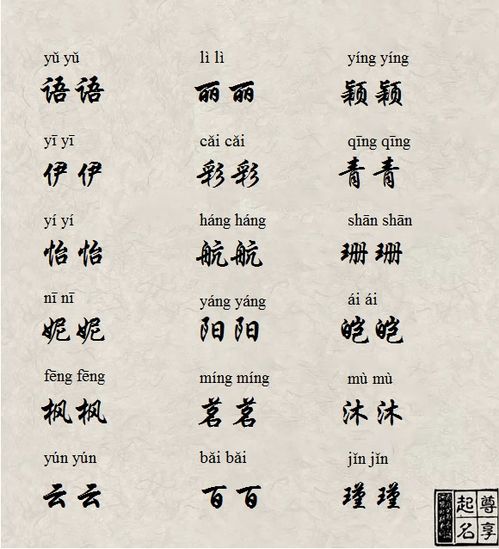 yǔ yǔ lì lì yíng yíng
语语 丽丽 颖颖
yī yī cǎi cǎi qīng qīng
伊伊 彩彩 青青
yí yí háng háng shān shān
怡怡 航航 珊珊
nī nī yáng yáng ái ái
妮妮 阳阳 皑皑
fēng fēng míng míng mù mù
枫枫 茗茗 沐沐
yún yún bǎi bǎi jǐn jǐn
云云 百百 瑾瑾
尊享
起名